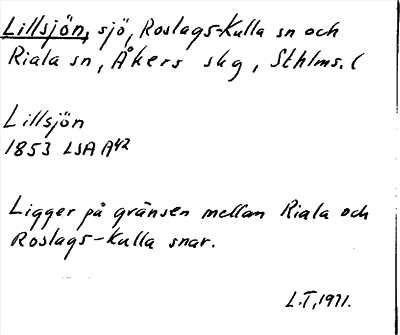 Lillsjön, sjö, Roslags-Kulla sn och
Riala sn, Åkers skg, Sthlms. (
Lillsjön
1853 LSA A42
Ligger på gränsen mellan Riala och
Roslags-Kulla snar.
L.T, 1971.